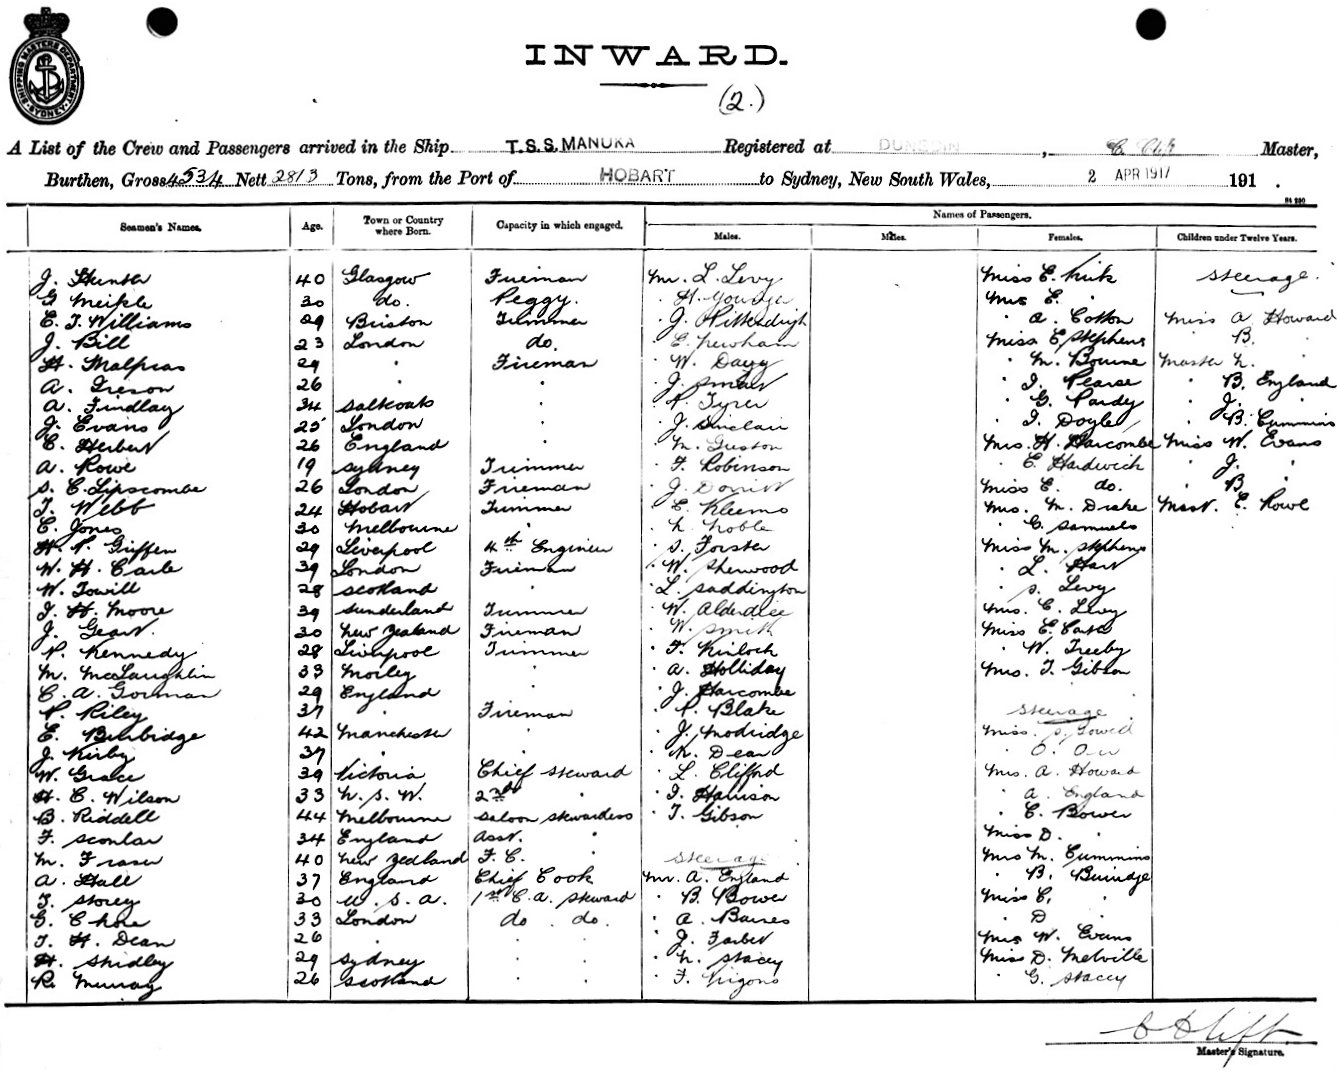 SHIPPING MASTERS DEPARTMENT SYDNEY
INWARD.
(2.)
A List of the Crew and Passengers arrived in the Ship T.S.S. MANUKA Registered at DUNEDIN, Master,
Burthen, Gross 4534 Nett 2813 Tons, from the Port of HOBART to Sydney, New South Wales, 2 APR 1917 191 .
Names of Passengers.
Seamen's Names. Age. Town or Country where Born. Capacity in which engaged. Males. Males. Females. Children under Twelve Years.
J. Hunter 40 Glasgow Fireman Mr. L. Levy Miss E. Kirk Steerage
G Meikle 30 do. Peggy. · H. Mrs E. ·
E. J. Williams 29 Trimmer · J. Pittendrigh · A. Cotton Miss A Howard
J. Bill 23 London do. · E. Newham Miss E. Stephens · B. ·
H. Malpras 29 · Fireman · W. Dagg · M. Bourne Master N. ·
A. 26 · · · J. Smart · I. Pearse · B. England
A. Findlay 34 Saltcoats · · P. Tyrer · G. Pardy · J. ·
J. Evans 25 London · · J. Sinclair · I. Doyle · B. Cummins
E. Herbert 26 England · · M. Mrs. H. Harcombe Miss W. Evans
A. Rowe 19 Sydney Trimmer · F. Robinson · E. Hardwick · J. ·
S. C. Lipscombe 26 London Fireman · J. Miss E. do. · B ·
T. Webb 24 Hobart Trimmer · E Kleems Mrs. M. Drake Mast. E. Rowe
E. Jones 30 Melbourne · · N. Noble · G. Samuels
H. P. Giffen 29 Liverpool 4th Engineer · S. Forster Miss M. Stephens
W. H. Earle 39 London Fireman · W. Sherwood · L. Hart
W. Towill 28 Scotland · · L. Saddington · S. Levy
J. H. Moore 39 Sunderland Trimmer · W. Alderdice Mrs. C. Levy
J. Geart. 30 New Zealand Fireman · W. Smith Miss E.
P. Kennedy 28 Liverpool Trimmer · F. Kinloch · W. Treeby
M. McLaughlin 33 Morley · · A. Holliday Mrs. T. Gibson
C. A. Gorman 29 England · · J. Harcombe
P. Riley 37 · Fireman · P. Blake Steerage
E. Burbidge 42 Manchester · · J. Modridge Miss. S.
J. Kirby 37 · · · Dean · O. Orr
W. Grace 39 Victoria Chief Steward · L. Clifford Mrs. A. Howard
H. C. Wilson 33 N. S. W. 2nd · · J. Harrison · A. England
B. Riddell 44 Melbourne Saloon Stewardess · T. Gibson · E. Bower
F. Scoular 34 England Asst. · Miss D. ·
M. Fraser 40 New Zealand F. C. · Steerage Mrs M. Cummins
A. Hall 37 England Chief Cook Mr. A. England · B.
T. Storey 30 U. S. A. 1st C. A. Steward · B. Bower Miss C. ·
G. Chore 33 London do. do. · A. Baines · D ·
T. H. Dean 26 · · · · J. Mrs W. Evans
H. Shidley 29 Sydney · · · N. Stacey Miss D. Melville
R. Murray 26 Scotland · · · F. · G. Stacey
Master's Signature.